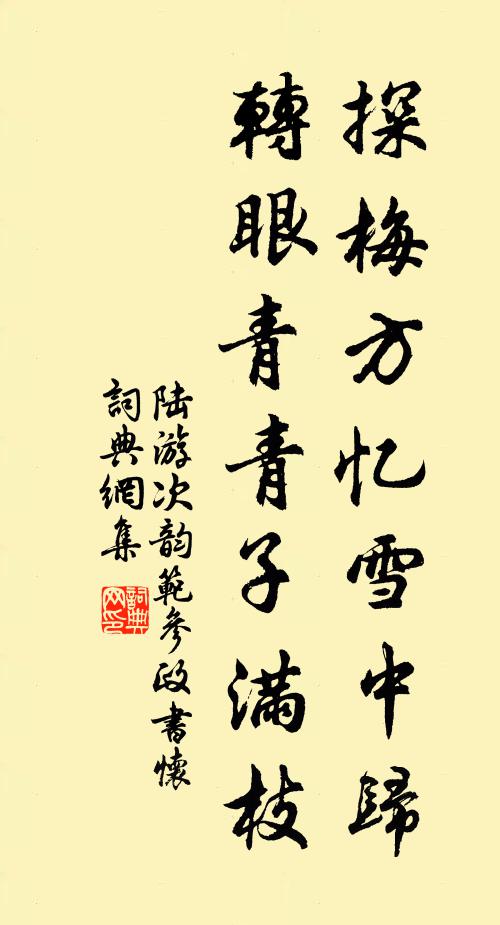 探梅方忆雪中歸
轉眼青青子滿枝
陆游次韵範參政書懷
詞典網集
詞典网印